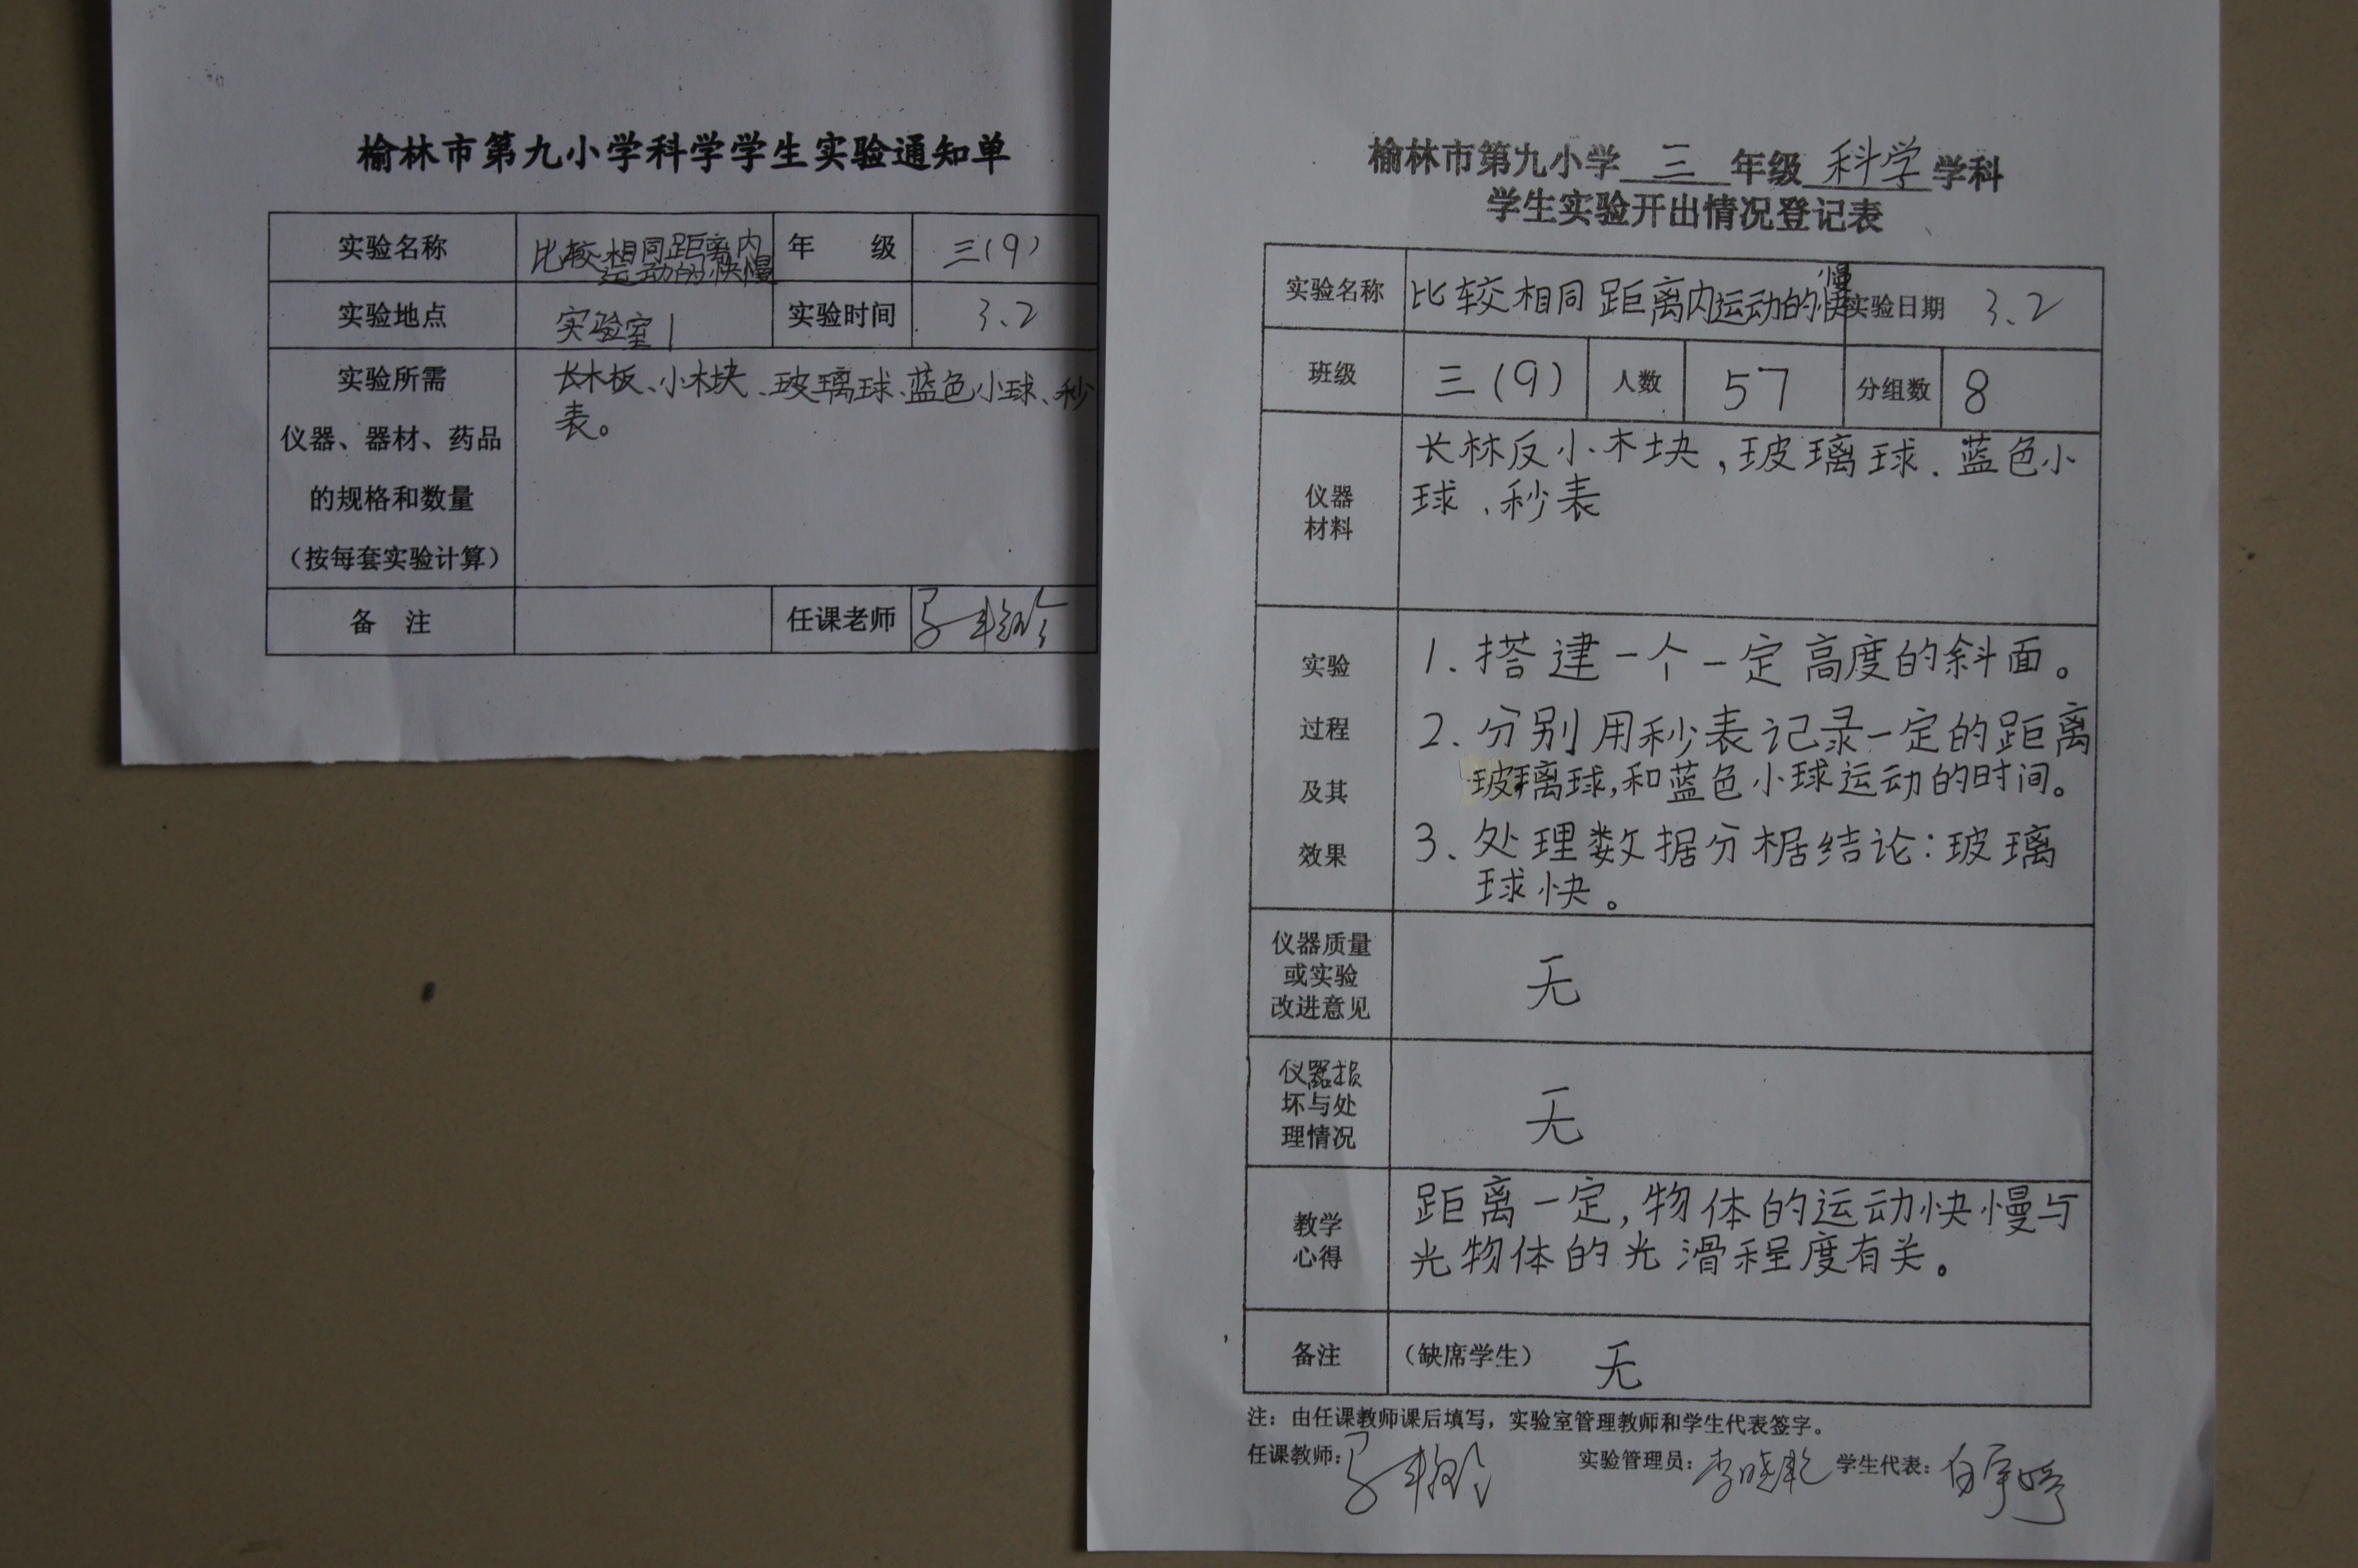 榆林市第九小学科学学生实验通知单
实验名称 比较相同距离内运动的快慢 年 级 三(9)
实验地点 实验室1 实验时间 3.2
实验所需
仪器、器材、药品
的规格和数量
（按每套实验计算）
长木板、小木块、玻璃球、蓝色小球、秒
表。
备 注 任课老师
榆林市第九小学 三 年级 科学 学科
学生实验开出情况登记表
实验名称 比较相同距离内运动的快慢 实验日期 3.2
班级 三(9) 人数 57 分组数 8
仪器
材料
长木板反小木块,玻璃球.蓝色小
球、秒表
实验
过程
及其
效果
1、搭建一个一定高度的斜面。
2、分别用秒表记录一定的距离
玻璃球,和蓝色小球运动的时间。
3、处理数据分椐结论:玻璃
球快。
仪器质量
或实验
改进意见
无
仪器损
坏与处
理情况
无
教学
心得
距离一定,物体的运动快慢与
光物体的光滑程度有关。
备注 （缺席学生） 无
注：由任课教师课后填写，实验室管理教师和学生代表签字。
任课教师： 实验管理员： 学生代表：